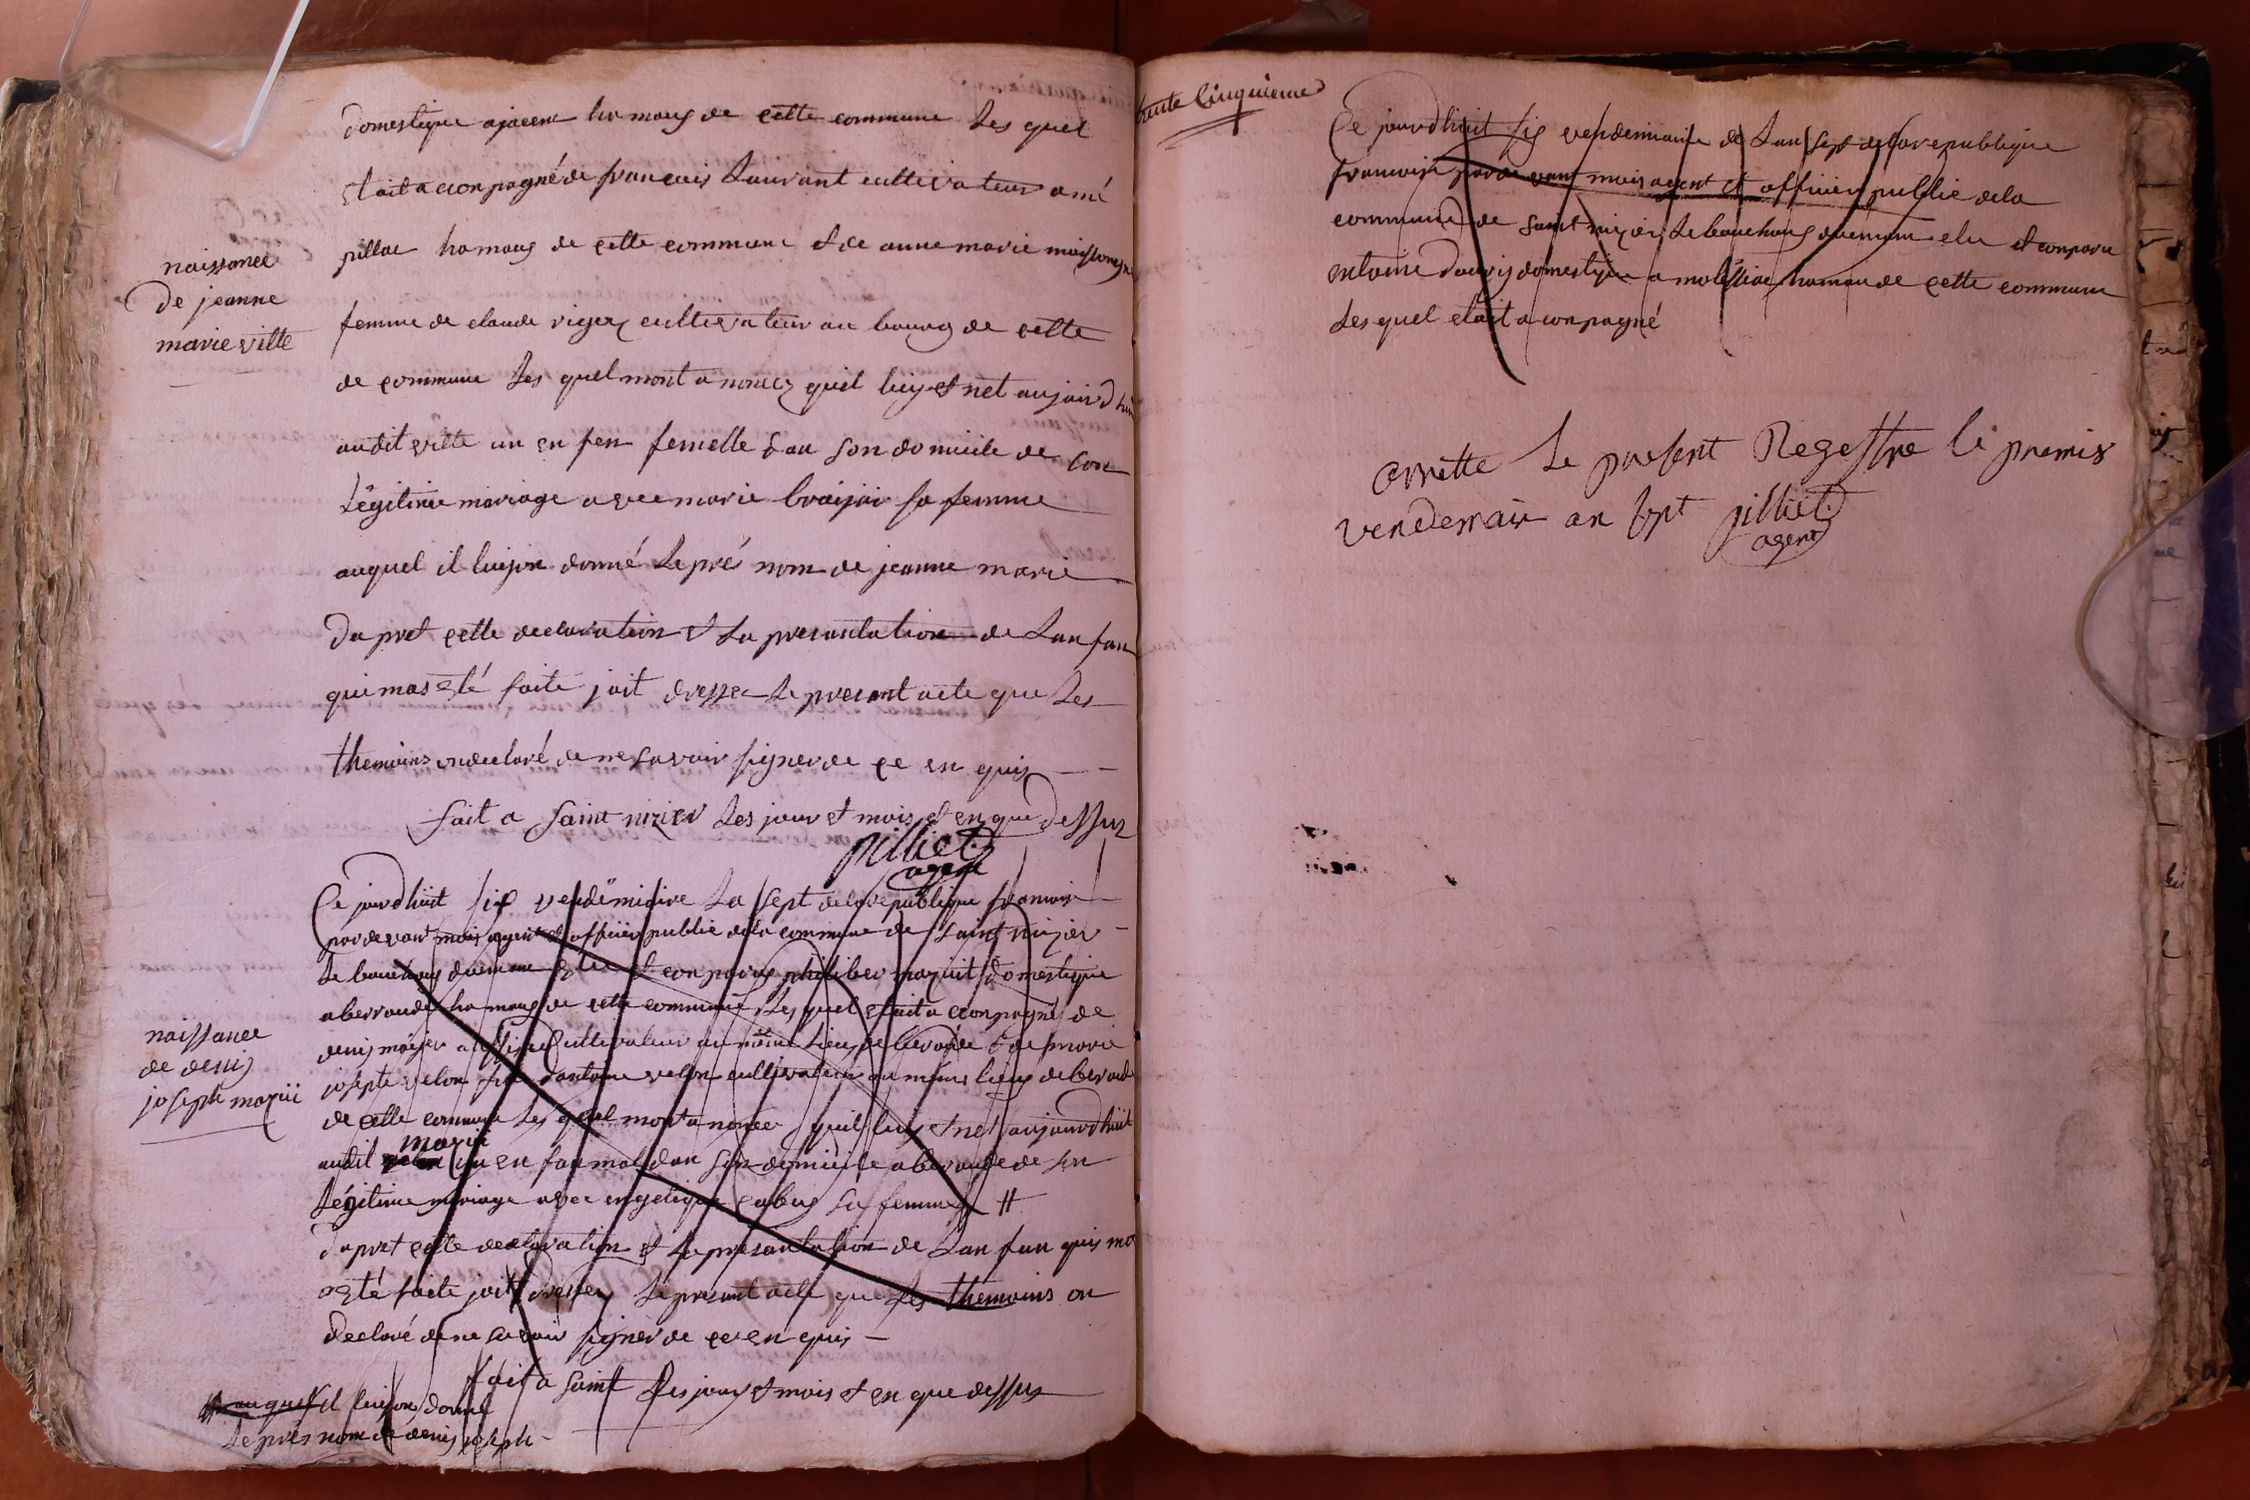 domestique ajacene hamaux de cette commune Les quel
Etait a cconpagné de francais Laurant cultivateur a mé
pillac hamaux de cette commune & de anne marie
naissance
de jeanne
marie vitte
femme de claude vigez cultivateur au bourg de cette
de commune Les quel mont anoncez quil luy et net aujourd hui
audit vitte un en fen femelle dan son domicile de son
Légitime mariage avec marie braijair sa femme
auquel il luijon donné Le prés nom de jeanne marie
Da pret cette declaration & La presantation de Lanfan
qui mas eté faite jait dresser Le presant acte que Les
themoins on declaré de ne savoir signer de ce en quis
fait a Saint nizier Les jour et mois et en que dessus
pilliet
agent
Ce jourd huit six vendémiaire La sept de la republique francais
par devant mois agent & officier public de la commune de Saint nizier
Le bouchoux duemen Elu et conparus philiber mazuit domestique
a berraude hamaux de cette commune Les quel etait a cconpagné de
denis cultivateur au même Lieux de & de marie
josepte velon dantoine velon cultivateur au même lieux de beraude
de cette commune Les quel mont anoncé quil luis et net aujourdhuit
naissance
de denis
joseph mazuii
audit mazui un en fan mal dan son domicile a beraude de son
Légitime mariage avec engelique cabus sa femme #
Da pret cette declaration et La presantation de Lan fan quis ma
eté faite jait dresser Le presant acte que Les themoins on
declaré de ne savoir signer de ce en quis
fait a Saint Les jour et mois et en que dessus
# auquel il luijon donné
Le pres nom de denis joseph
trente Cinquieme
Ce jourd huit six vendemiaire de Lan sept de la republique
francaise par devant mois agent et officier public de la
commune de Saint nizier Le bouchoux duemen elu et conparu
entoine Dauvis domestique a hamau de cette commune
Les quel etait a conpagné
arrette Le present Regestre le premier
vendemair an sept pilliet
agent